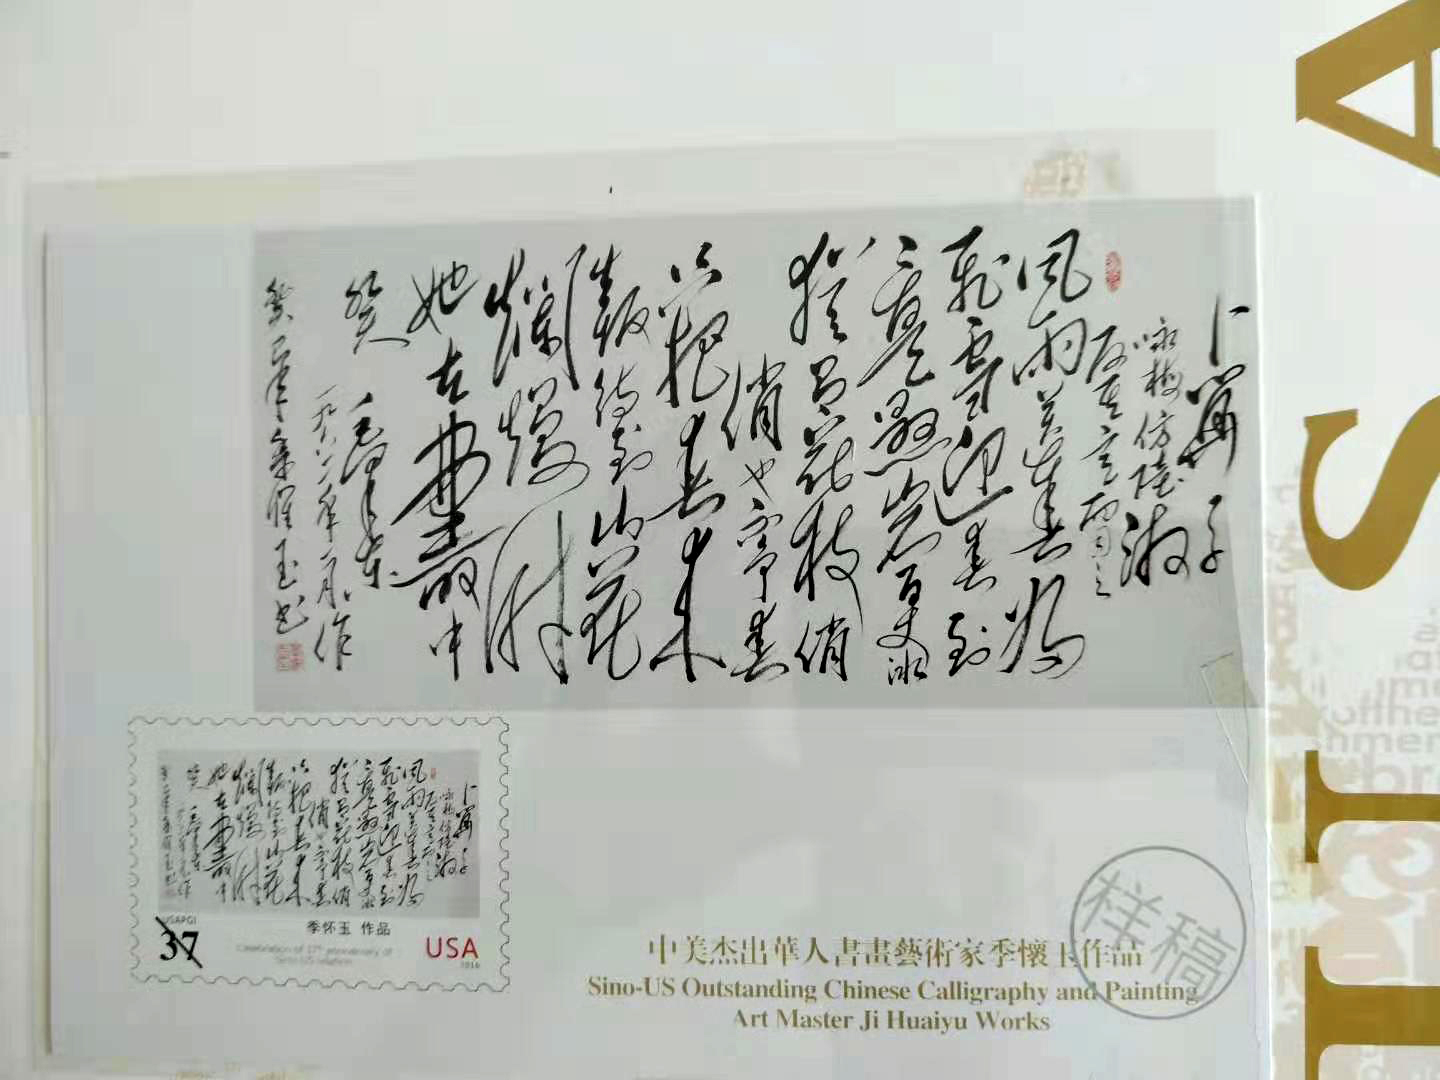 卜算子
咏梅仿陆游
反其意而用之
风雨送春归
飞雪迎春到
已是悬崖百丈冰
犹有花枝俏
俏也不争春
只把春来
报待到山花
烂漫时
她在丛中
笑
毛泽东
癸巳年季怀玉书
37
季怀玉 作品
Celebration of 37th anniversary of
Sino-US relation
USA
2016
中美杰出華人書畫藝術家季懷玉作品
Sino-US Outstanding Chinese Calligraphy and Painting
Art Master Ji Huaiyu Works
样稿